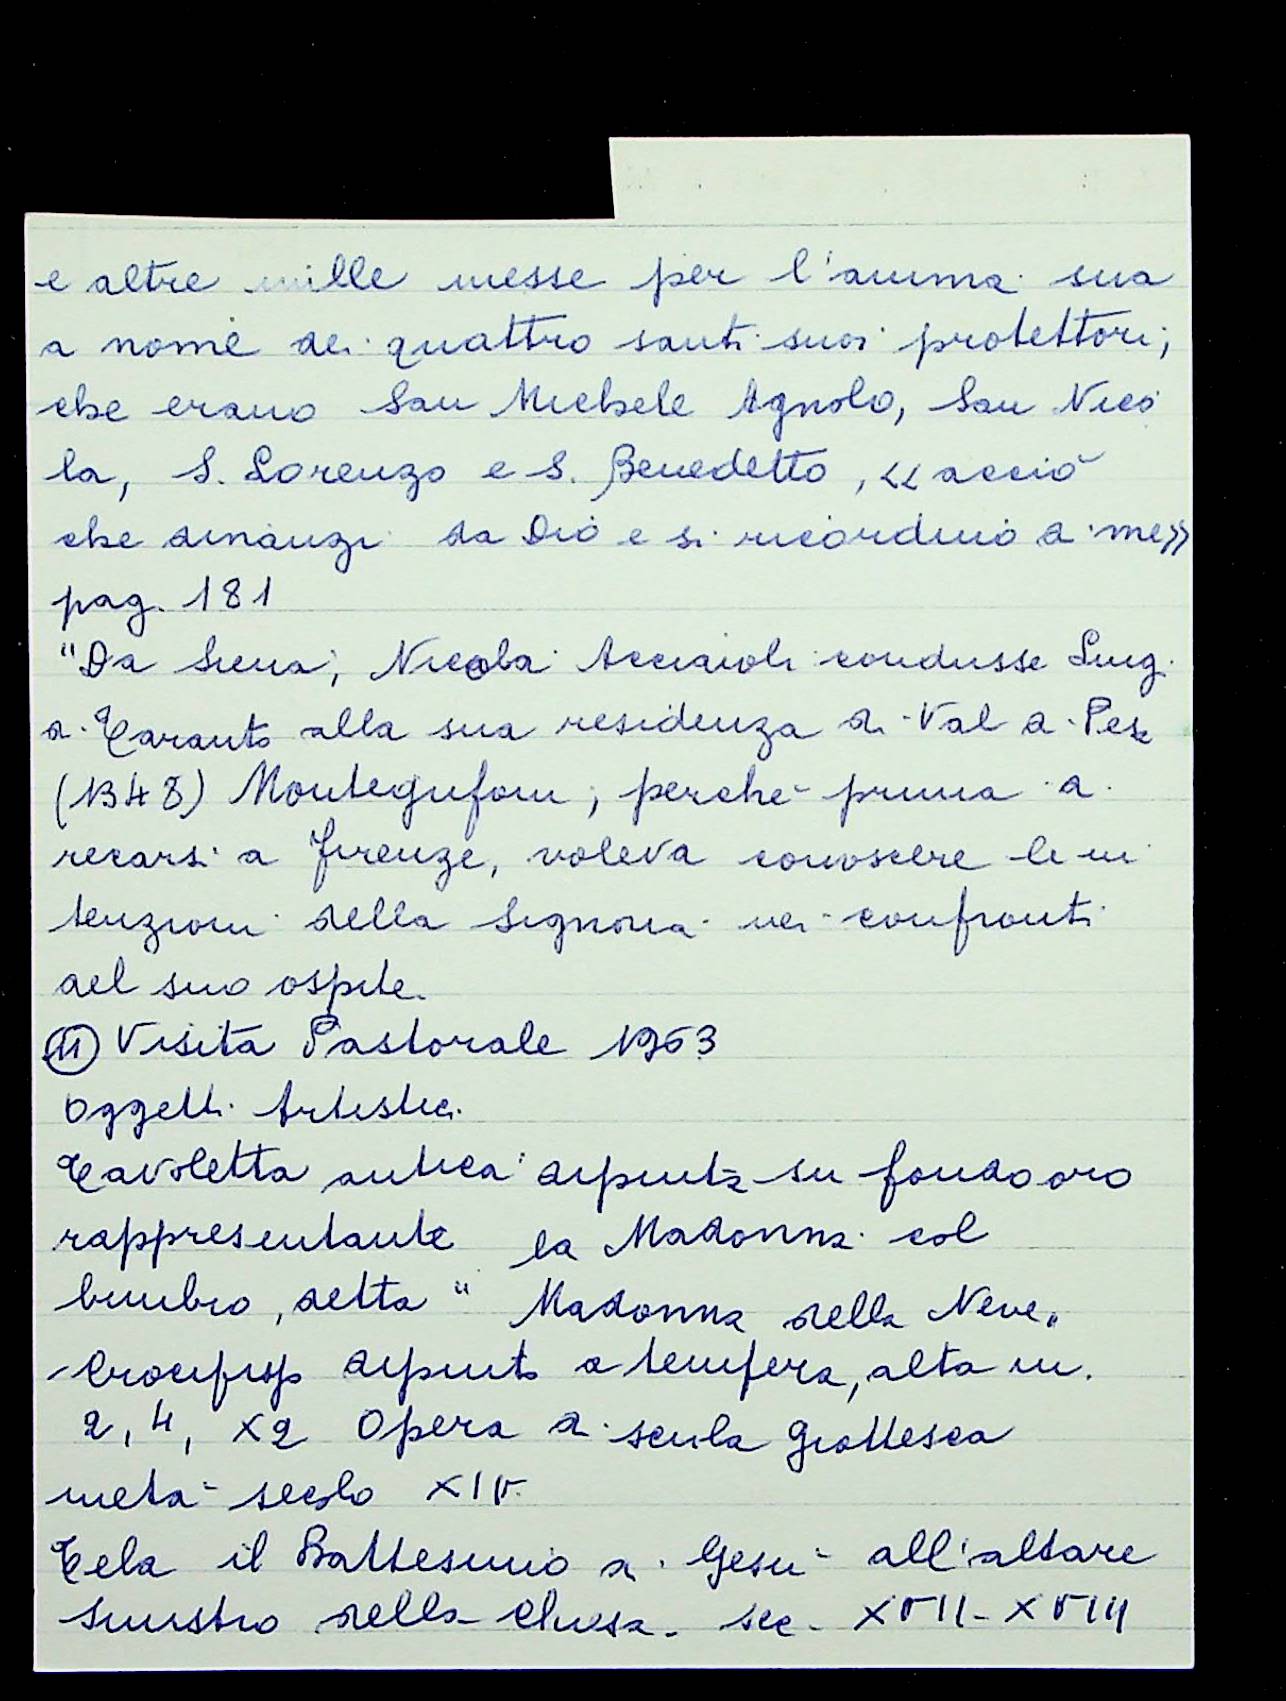 e altre mille messe per l'anima sua
a nome dei quattro santi suoi protettori,
che erano San Michele Agnolo, San Nico
la, S. Lorenzo e S. Benedetto, << acciò
che dinanzi da Dio e si ricordino di me>>
pag. 181
"Da Siena, Nicola Acciaioli condusse Luigi
di Taranto alla sua residenza di Val di Pesa
(1348) Montegufoni, perchè prima di
recarsi a Firenze, voleva conoscere le in
tenzioni della Signoria nei confronti
del suo ospite.
Visita Pastorale 1963
Oggetti Artistici
Tavoletta antica dipinta su fondo oro
rappresentante la Madonna col
bimbo, detta " Madonna della Neve"
Crocifisso dipinto a tempera, alta m.
2,4, x2 Opera di scuola Giottesca
metà secolo XIV.
Tela il Battesimo di Gesù all'altare
sinistro della Chiesa. sec. XVII-XVIII